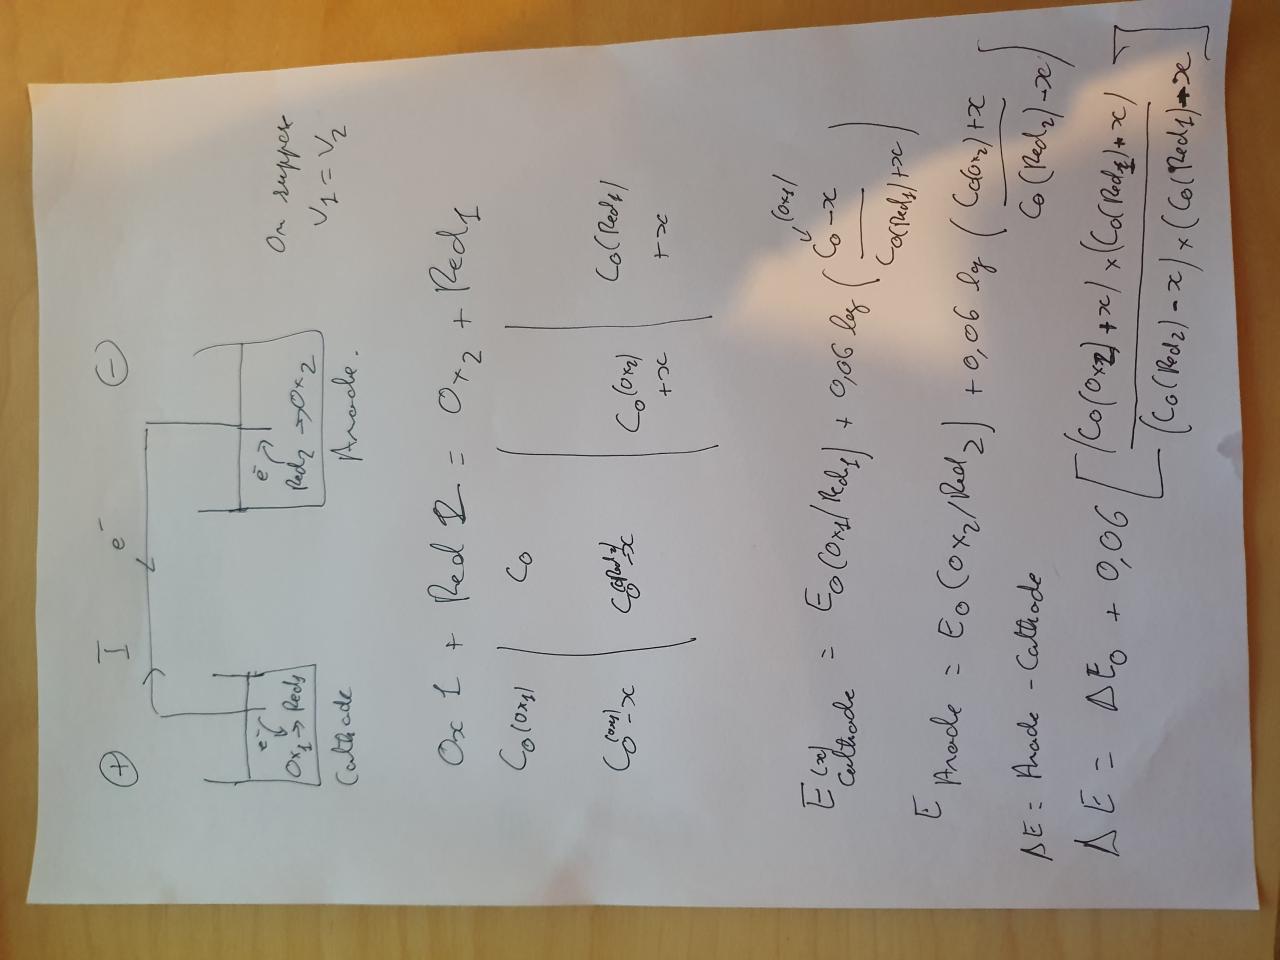 ⊕ I e⁻ ⊖
e⁻
Ox₁ → Red₁
Cathode
e⁻
Red₂ → Ox₂
Anode.
On suppose
V₁ = V₂
Ox 1 + Red 2 = Ox₂ + Red₁
C₀(Ox₁) | C₀ | |
C₀(Ox₁) - x | C₀(Red₂) - x | C₀(Ox₂) + x | C₀(Red₁) + x
E(x) Cathode = E₀(Ox₁/Red₁) + 0,06 log ( C₀(Ox₁) - x / C₀(Red₁) + x )
E Anode = E₀(Ox₂/Red₂) + 0,06 log ( C₀(Ox₂) + x / C₀(Red₂) - x )
ΔE = Anode - Cathode
ΔE = ΔE₀ + 0,06 [ (C₀(Ox2) + x) × (C₀(Red1) + x) / (C₀(Red₂) - x) × (C₀(Red₁) + x ]